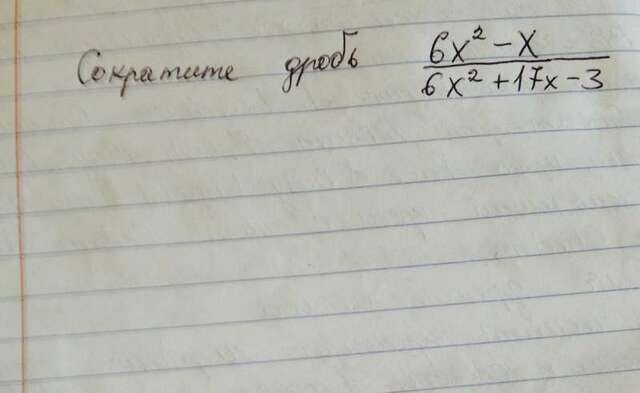 Сократите дробь (6x² - x)/(6x² + 17x - 3)